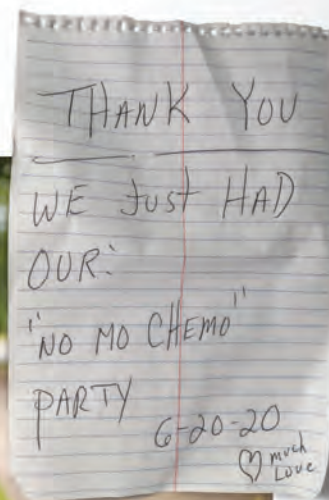 THANK YOU
WE JUST HAD
OUR:
"NO MO CHEMO"
PARTY
6-20-20
♡ much
Love